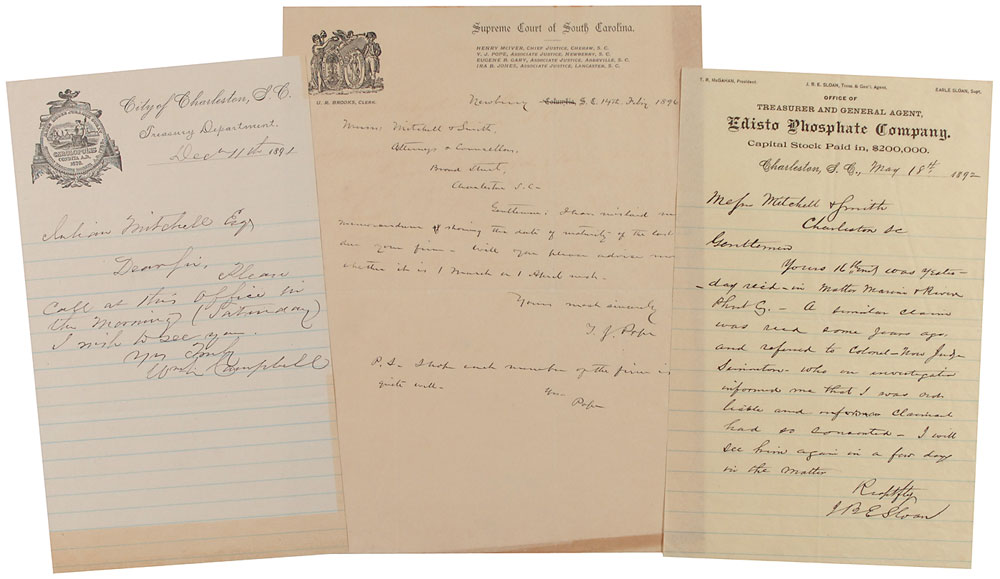 City of Charleston, S. C.
Treasury Department.
Dec 11th 1891
Julian Mitchell Esq
Dear Sir, Please
call at this office in
the morning (Saturday)
I wish to see you.
Yrs truly
Campbell
Supreme Court of South Carolina.
HENRY McIVER, CHIEF JUSTICE, CHERAW, S. C.
Y. J. POPE, ASSOCIATE JUSTICE, NEWBERRY, S. C.
EUGENE B. GARY, ASSOCIATE JUSTICE, ABBEVILLE, S. C.
IRA B. JONES, ASSOCIATE JUSTICE, LANCASTER, S. C.
U. R. BROOKS, CLERK.
Newberry Columbia, S. C. 14th Feby 1896
Messrs Mitchell & Smith,
Attorneys & Counsellors,
Broad Street,
Charleston S.C.
Gentlemen: I have mislaid my
memorandum showing the date of maturity of the last
due your firm. Will you please advise me
whether it is 1 March or 1 April next.
Yours most sincerely
Y. J. Pope
P. S. I hope each member of the firm is
quite well.
Yrs
Pope
T. R. McGAHAN, President.
J. B. E. SLOAN, Treas. & Gen'l. Agent.
EARLE SLOAN, Supt.
OFFICE OF
TREASURER AND GENERAL AGENT,
Edisto Phosphate Company.
Capital Stock Paid in, $200,000.
Charleston, S. C., May 18th 1892
Messrs Mitchell & Smith
Charleston SC
Gentlemen
Yours 16th inst was yester-
-day recd - in Matter Marine & River
Phos Co. - A similar claim
was recd some years ago
and referred to Colonel - Now Judge
Simonton - who on investigation
informed me that I was not
liable and claimant
had so consented - I will
see him again in a few days
in the matter
Respctfly
J B E Sloan